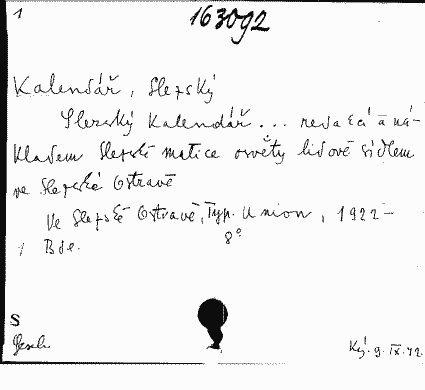 1
163092
Kalendář, Slezský
Slezský Kalendář... redakcí a ná-
kladem Slezské matice osvěty lidové sídlem
ve Slezské Ostravě
Ve Slezské Ostravě, Typ. Union, 1922-
8°
Bde.
S
Ký. 9. IX. 42.